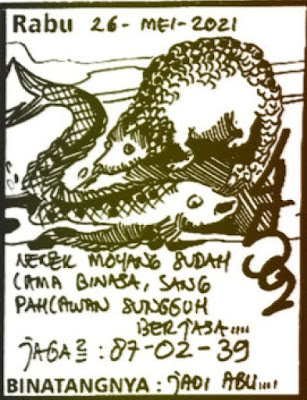 Rabu 26-MEI-2021
NENEK MOYANG SUDAH
LAMA BINASA, SANG
PAHLAWAN SUNGGUH
BERJASA....
JAGA2 = : 87-02-39
BINATANGNYA : JADI ABU....